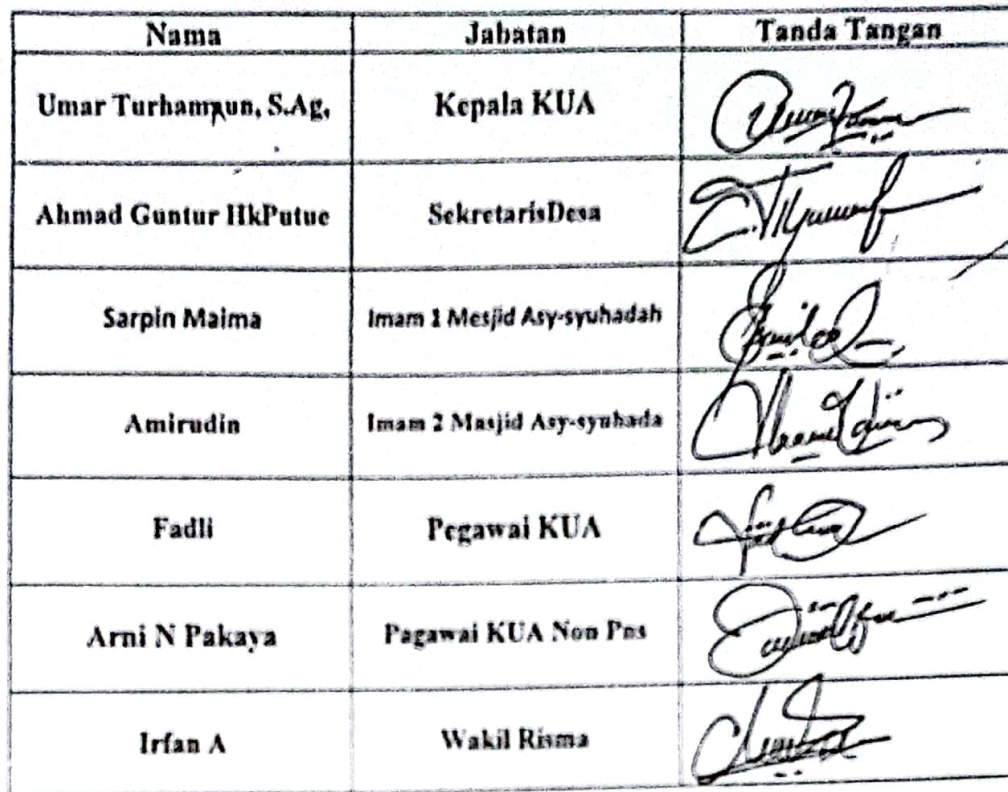 Nama Jabatan Tanda Tangan
Umar Turhampun, S.Ag, Kepala KUA
Ahmad Guntur HkPutue SekretarisDesa
Sarpin Maima Imam 1 Mesjid Asy-syuhadah
Amirudin Imam 2 Masjid Asy-syuhada
Fadli Pegawai KUA
Arni N Pakaya Pagawai KUA Non Pns
Irfan A Wakil Risma